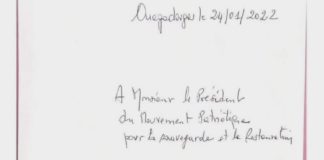 Ouagadougou le 24/01/2022
A Monsieur le Président
du Mouvement Patriotique
pour la sauvegarde et la Restauration